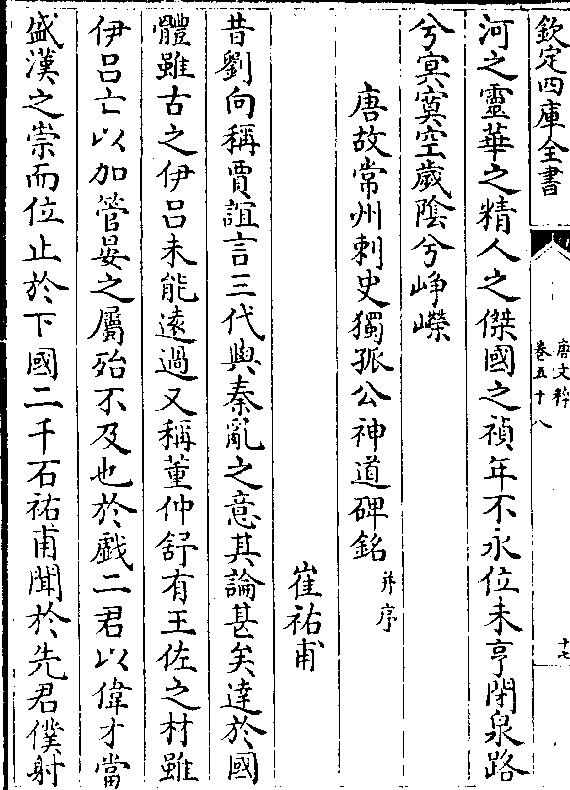 欽定四庫全書
唐文粹
卷五十八
十七
河之靈華之精人之傑國之禎年不永位未亨閉泉路
兮冥寞空歲陰兮崢嶸
唐故常州刺史獨孤公神道碑銘 并序
崔祐甫
昔劉向稱賈誼言三代與秦亂之意其論甚矣達於國
體雖古之伊呂未能遠過又稱董仲舒有王佐之材雖
伊呂亡以加管晏之屬殆不及也於戲二君以偉才當
盛漢之崇而位止於下國二千石祐甫聞於先君僕射